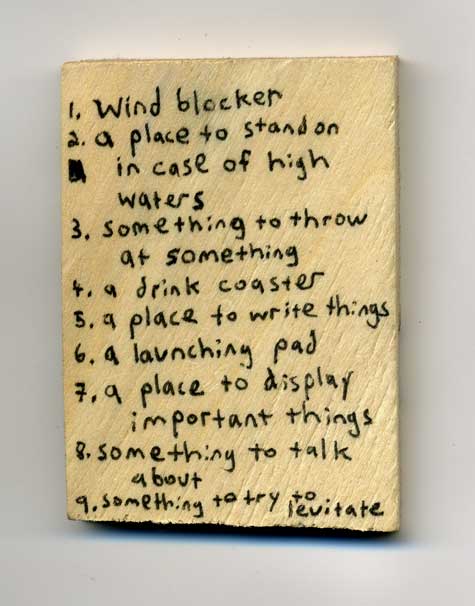 1. Wind blocker
2. a place to stand on
in case of high
waters
3. something to throw
at something
4. a drink coaster
5. a place to write things
6. a launching pad
7. a place to display
important things
8. something to talk
about
9. something to try to
levitate